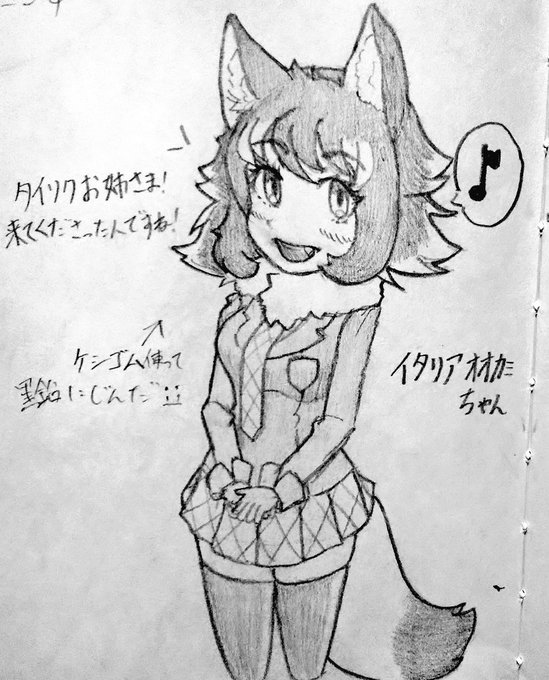 タイリクお姉さま!
来てくださったんですね!
ケシゴム使って
黒鉛にじんだ
イタリアオオカミ
ちゃん